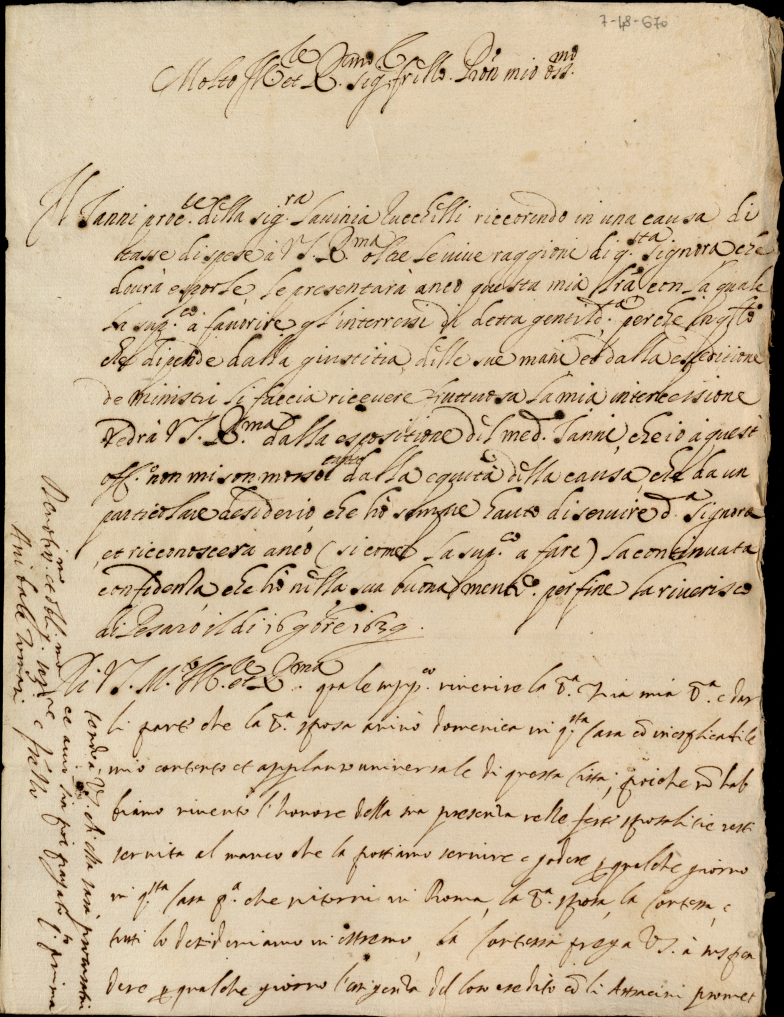 7-48-670
Molto Ill.le et R.mo Sig.r fr.llo Pron mio oss.mo
Il Ianni proc.re della sig.ra Lavinia riccorendo in una causa di
tasse di spese à V.S. R.ma oltre le vive raggioni di q.sta signora che
dovrà esporle, le presentarà anco questa mia l.ra con la quale
la sup.co à favorire gl'interressi di detta gentild.a perche in q.to
che dipende dalla giustitia, delle sue mani et dalla espeditione
de ministri li faccia ricevere fruttuosa la mia intercessione
Vedrà V.S. R.ma dalla espositione del med. Ianni, che io à questo
off.o non mi son mosso tanto dalla equità della causa, che da un
particolare desiderio, che hò sempre hauto di servire d.a Signora
et riconoscerà anco (si come la sup.co a fare) la continuata
confidenza che hò nella sua buona mente. per fine la riverisco
di Pesaro il dì 16 9bre 1639.
Di V.S. M. Ill.re et R.ma quale supp.co riverire la S.a Zia mia S.a e dar
li parte che la S.a sposa arivò domenica in q.sta Casa cō inesplicabile
mio contento et applauso universale di questa Città; poiche nō hab
biamo ricevuto l'honore della sua presenza nelle feste sponsalitie resti
servita al manco che la possiamo servire e godere p qualche giorno
in q.sta Casa p.a che ritorni in Roma, la S.a sposa, la Contessa, e
tutti lo desideriamo in estremo, la Contessa prega VS. à suspen
dere p qualche giorno l'esigenza del loro credito cō li promet
Devotiss.mo et obl.mo ser.re e f.ello
Anibale
tendo V.S. che sarà
prima